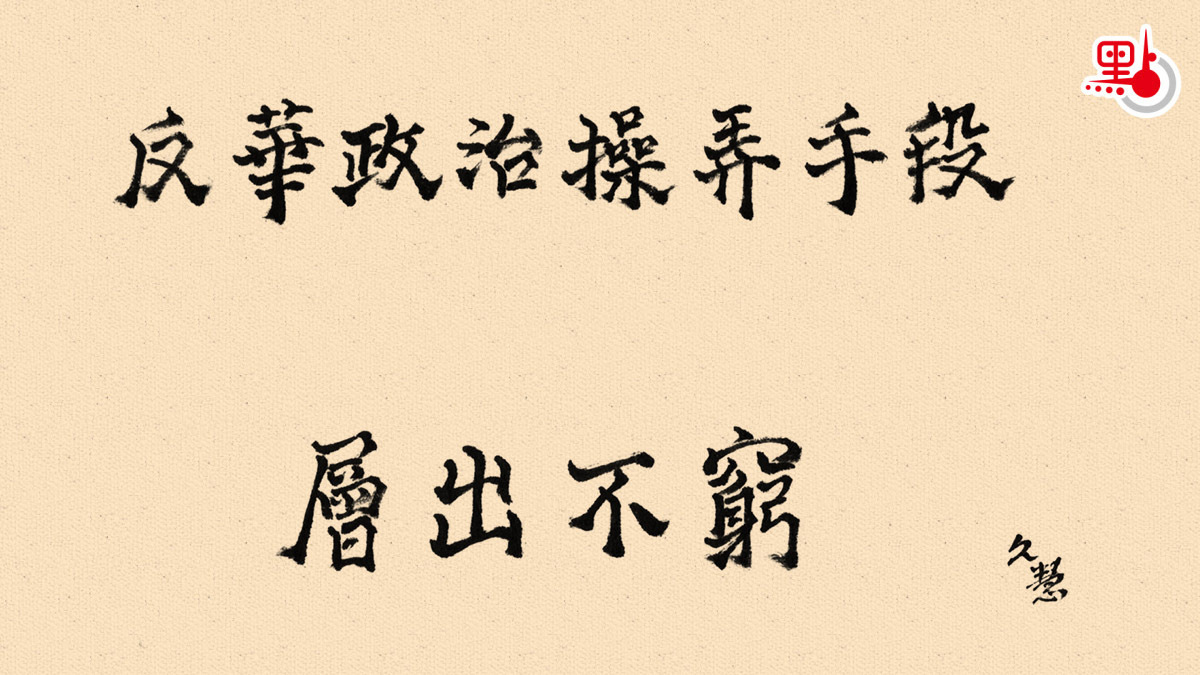 點
反華政治操弄手段
層出不窮
久慧